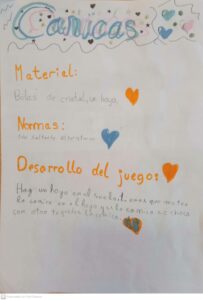 Canicas
Material:
Bolas de cristal, un hoyo.
Normas:
No saltarte el
Desarrollo del juego:
Hay un hoyo en el suelo y tienes que meter
la canica en el hoyo y si la canica se choca
con otra